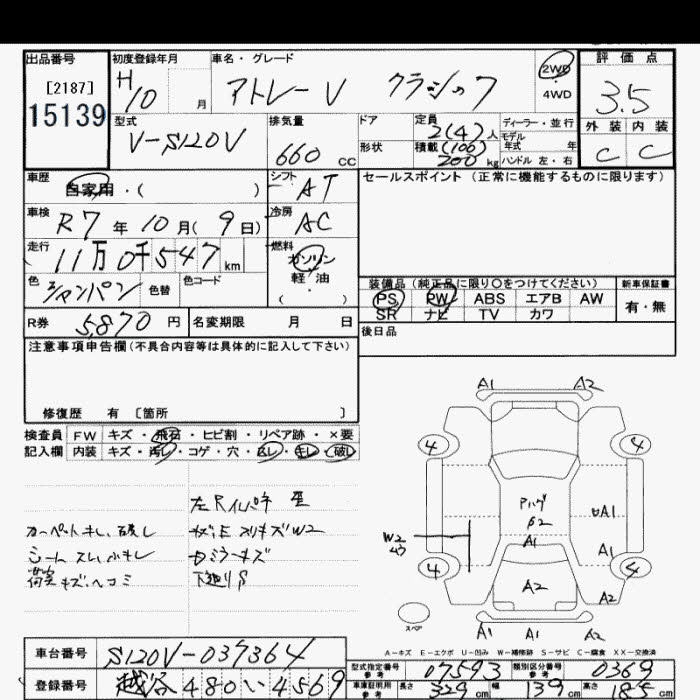 出品番号 初度登録年月 車名・グレード 2WD 評価点
[2187] H アトレーV クラシック 4WD 3.5
15139 10 月
型式 排気量 ドア 定員 ディーラー・並行 外装 内装
V-S120V 660 CC 2(4)人 モデル 年式 年 C C
形状 積載 (100) 200 kg ハンドル 左・右
車歴 自家用・( ) シフト AT セールスポイント(正常に機能するものに限ります)
車検 R7年10月(9日) 冷房 AC
走行 11万0千547 km 燃料 ガソリン
軽・油
( )
色 シャンパン 色替 色コード
装備品(純正品に限り○をつけてください) 新車保証書
PS PW ABS エアB AW 有・無
SR ナビ TV カワ
R券 5,870円 名変期限 月 日 後日品
注意事項申告欄(不具合内容等は具体的に記入して下さい)
修復歴 有 〔箇所 〕
検査員 FW キズ・飛石・ヒビ割・リペア跡・×要
記入欄 内装 キズ・汚レ・コゲ・穴・・キレ・破レ
カーペットキレ、破レ
キズ、ヘコミ
W2
A1 A2
4 4
Pハゲ
β2
A1
A1
A1
4 4
A2
A2
スペア
A1 A1 A2
A-キズ E-エクボ U-凹み W-補修跡 S-サビ C-腐食 XX-交換済
車台番号 S120V-037364
型式指定番号 参考 07593 類別区分番号 参考 0369
登録番号 越谷 480 い 4569
車庫証明用 参考 長さ 329 cm 幅 139 cm 高さ 185 cm